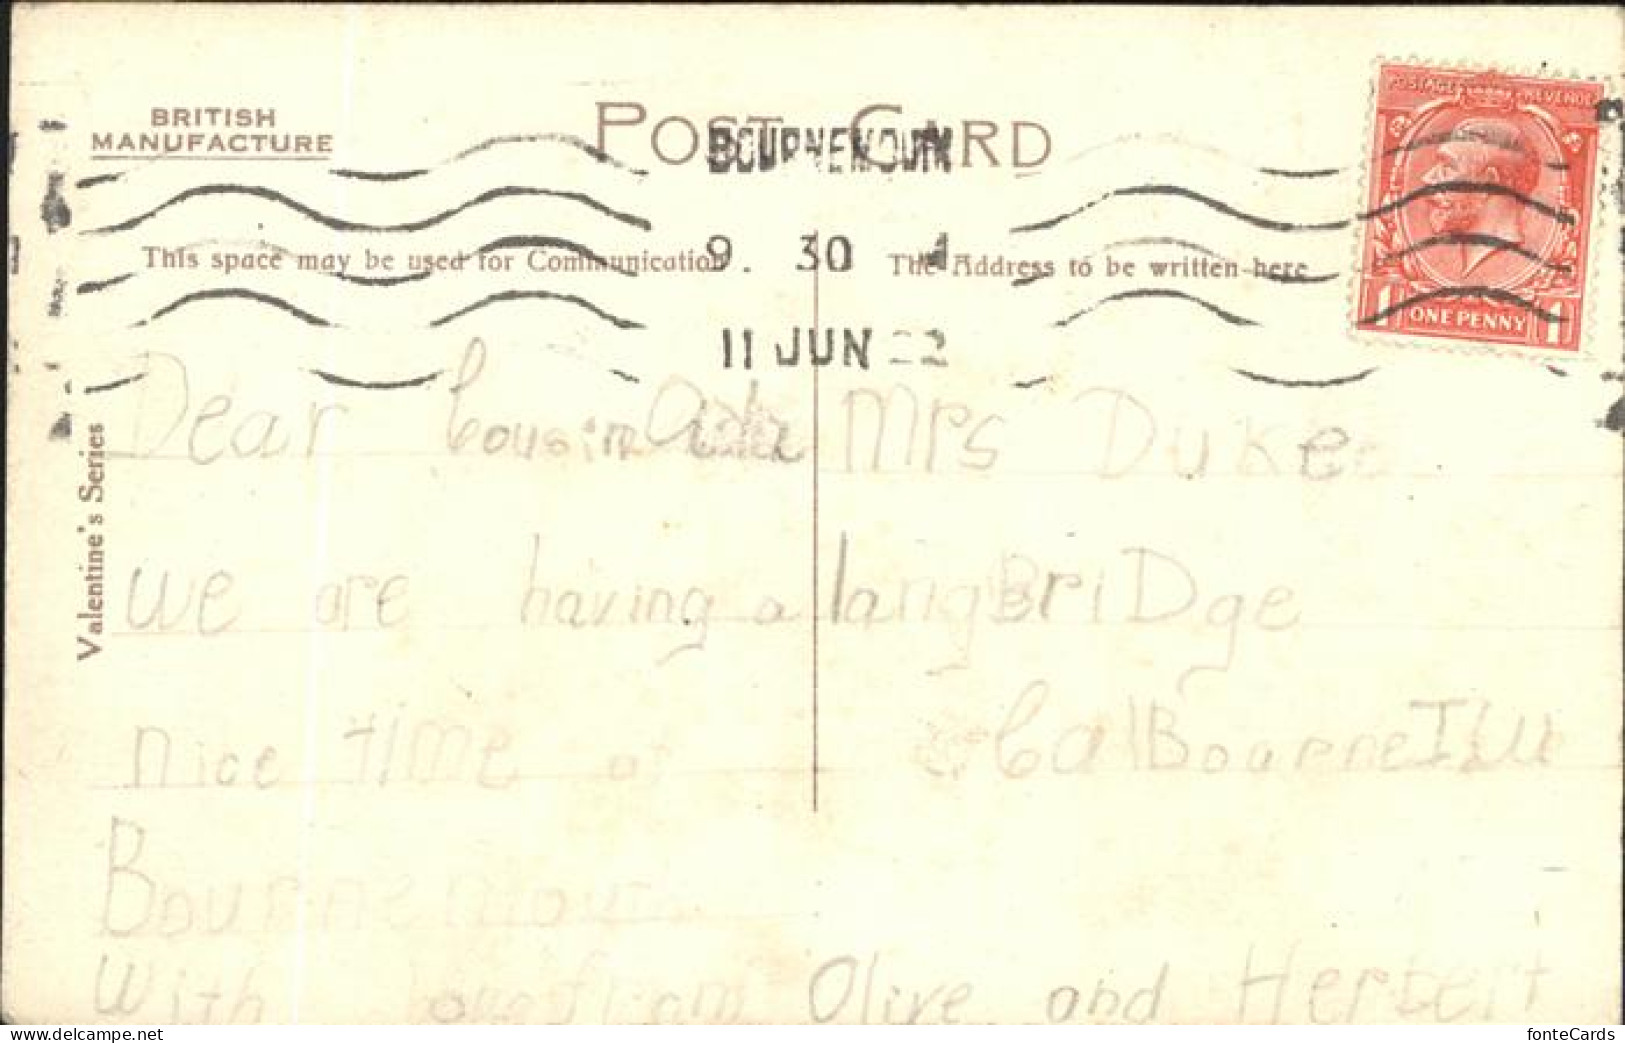 BRITISH
MANUFACTURE
POST CARD
BOURNEMOUTH
9. 30
11 JUN 22
POSTAGE REVENUE
1 ONE PENNY 1
This space may be used for Communication
The Address to be written here
Valentine's Series
Dear Cousin Ada
we are having a
nice TIME at
Bournemou
With love from Olive and Herbert
Mrs Duke
langBriDge
CalBourne I W
fonteCards